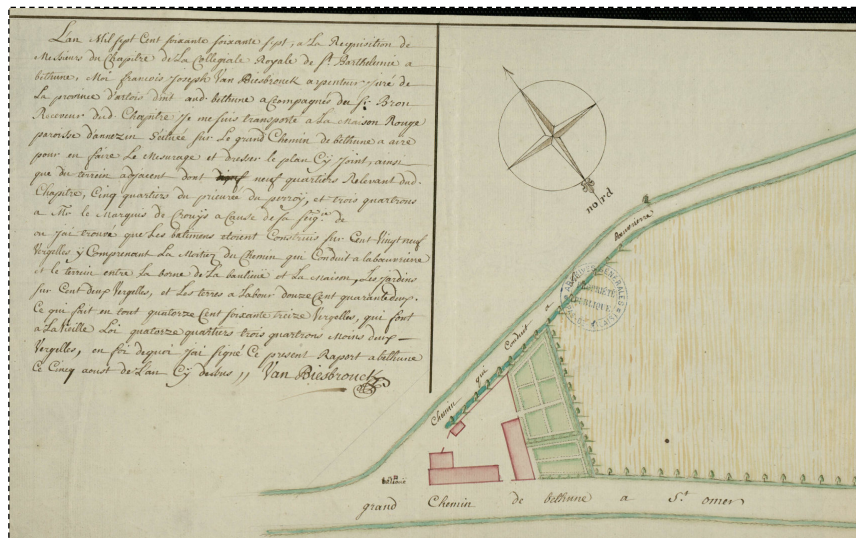 L'an Mil sept Cent soixante soixante sept, a La Requisition de
Messieurs du Chapitre de La Collegiale Royale de St. Barthelemie a
bethune, Moi francois Joseph Van Biesbrouck arpenteur juré de
La province d'artois dmt aud. bethune accompagnés du Sr. Bron
Receveur dud. Chapitre Je me suis transporté a La Maison Rouge
paroisse d'annezin Scituée sur Le grand Chemin de bethune a aire
pour en faire Le Mesurage et dresser le plan Cy joint, ainsi
que du terrein adjacent dont neuf quartiers Relevant dud.
Chapitre, Cinq quartiers du prieuré du perroy, et trois quartrons
a Mr. le Marquis de Crouÿs a Cause de sa seigrie. de
ou J'ai trouvé que Les batimens etoient Construis sur Cent Vingt neuf
Vergelles ÿ Comprenant La Mortiez du Chemin qui Conduit a labauvriere
et le terrein entre La borne de La banlieue et La Maison, Les Jardins
sur Cent deux Vergelles, et Les terres a Labour douze Cent quarante deux.
Ce qui fait en tout quatorze Cent soixante treize Vergelles, qui font
a La Vieille Loi quatorze quartiers trois quartrons Moins deux
Vergelles, en foi dequoi J'ai signé Ce present Raport a bethune
Ce Cinq aoust de L'an Cy dessus ,, Van Biesbrouck
nord
Chemin qui Conduit a
grand Chemin de bethune a St. omer